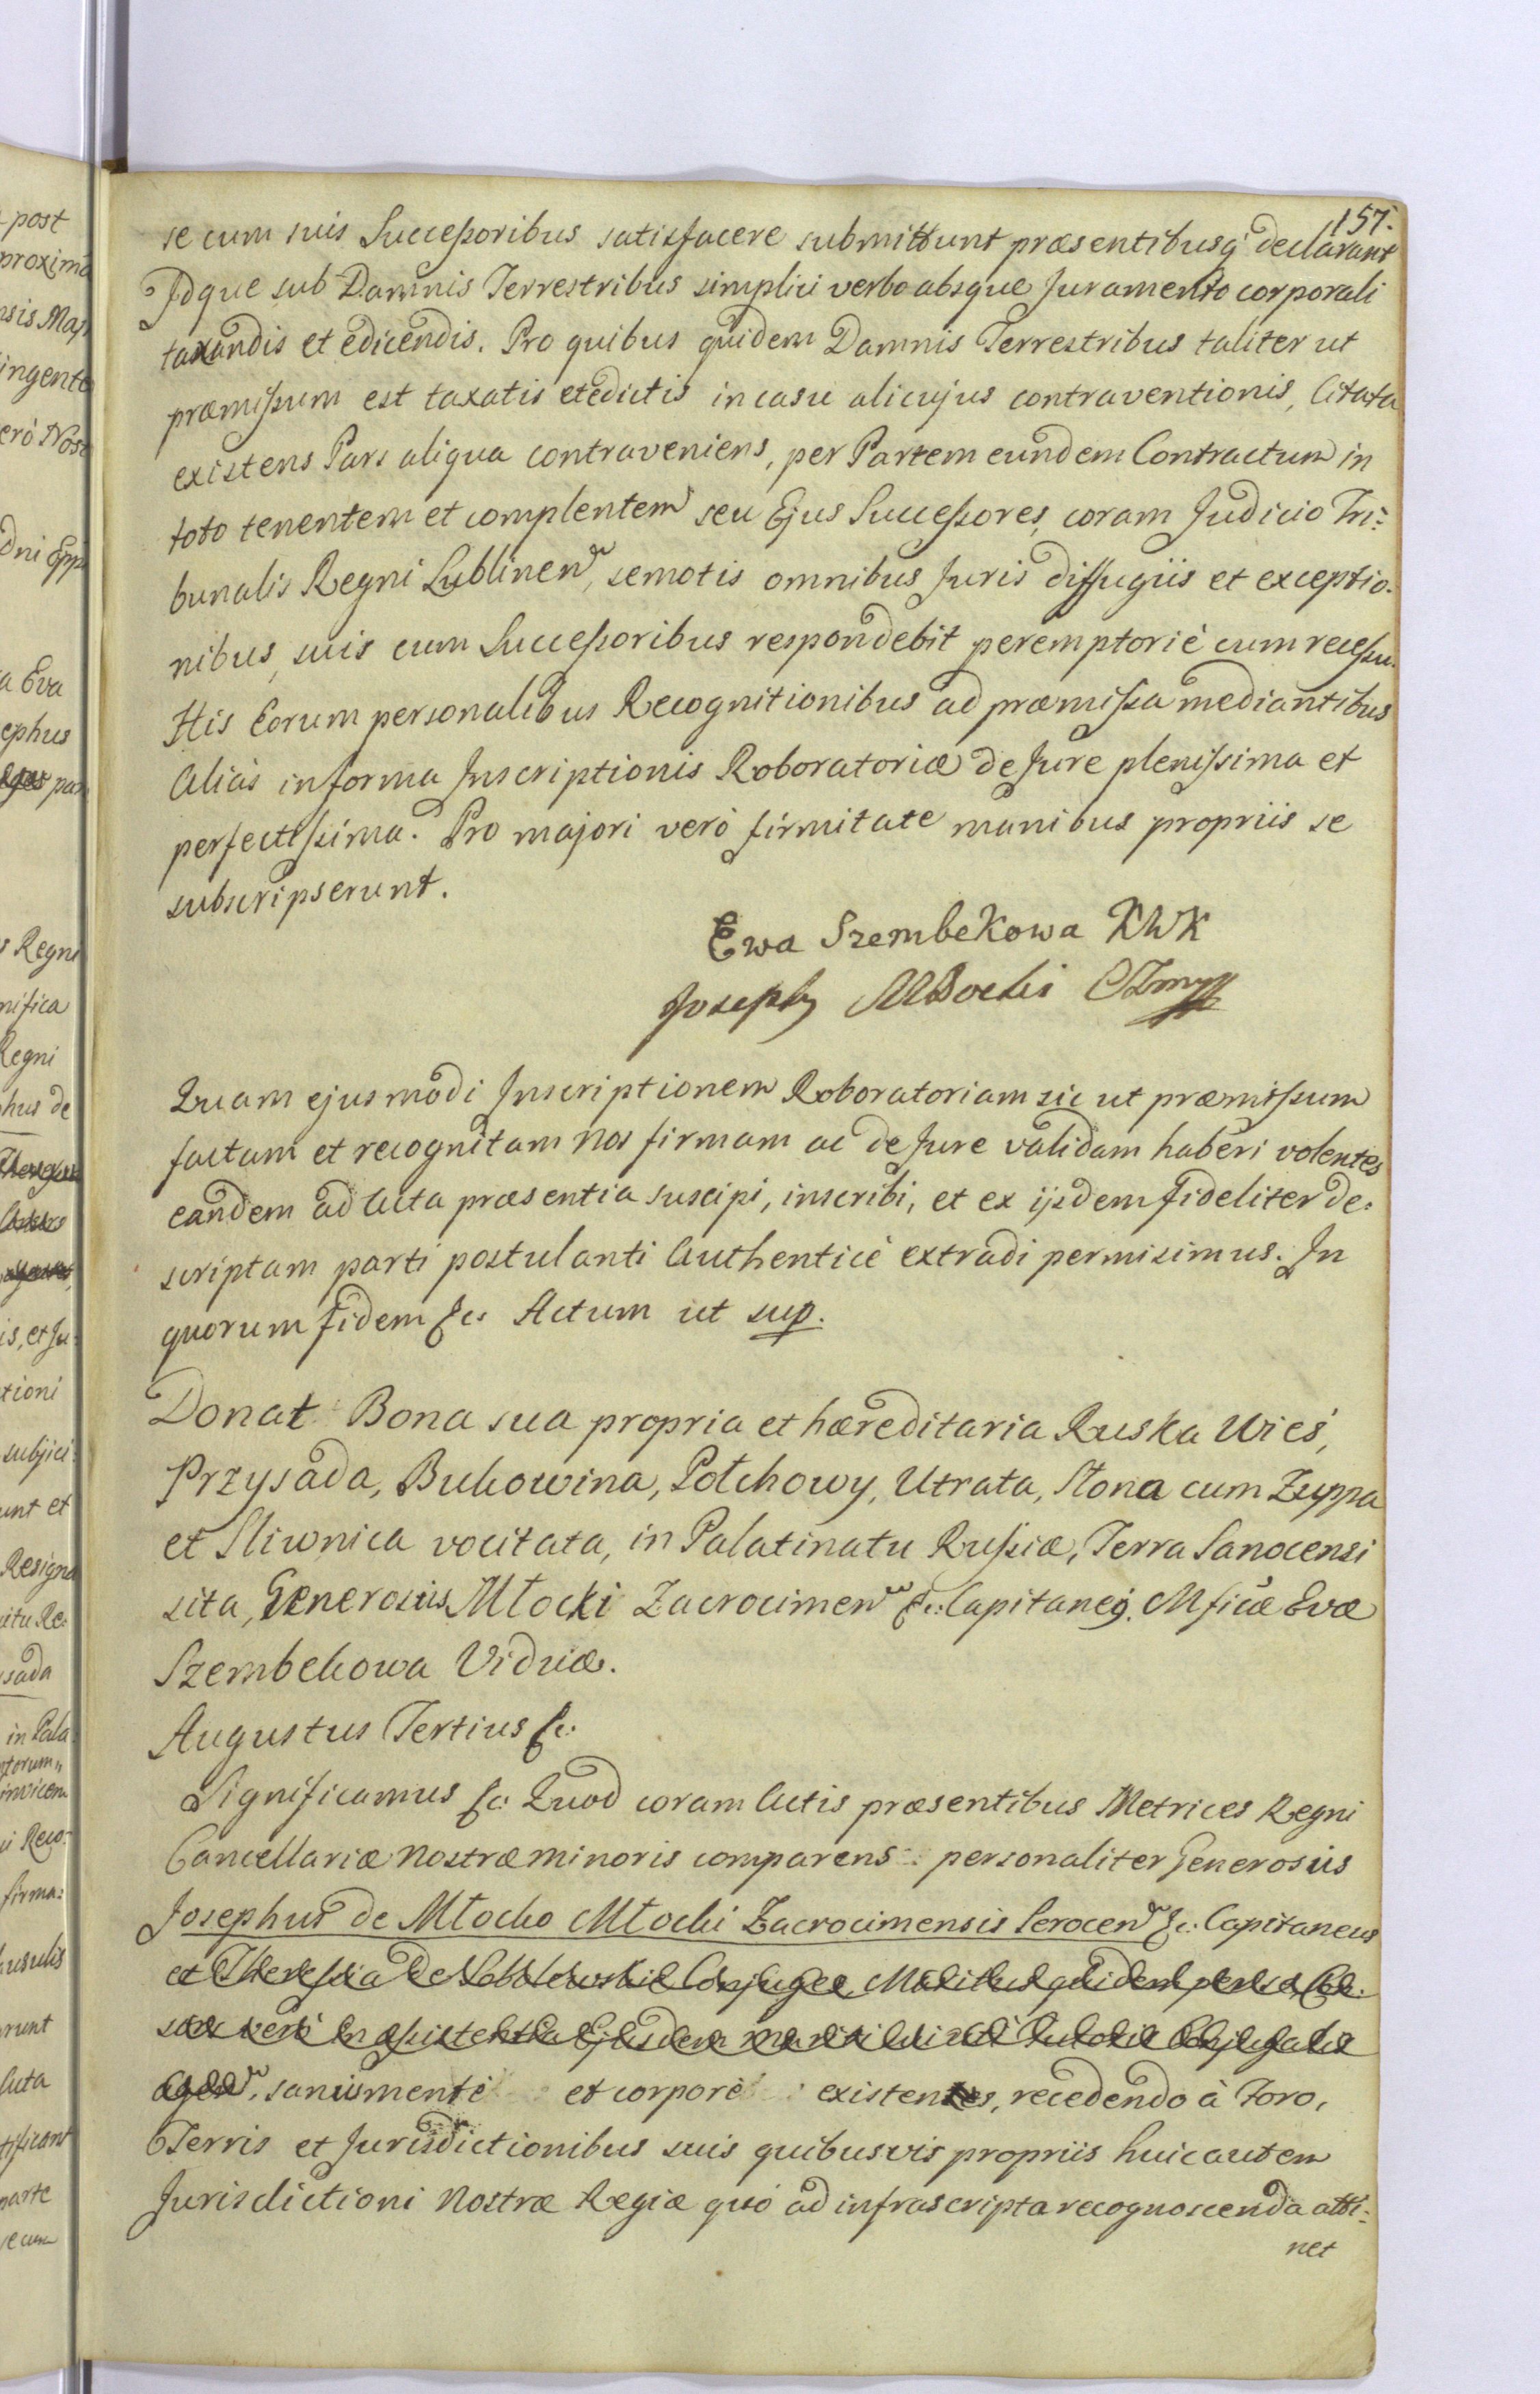 157.
se cum suis Successoribus satisfacere submittunt præsentibusq declarant
Idque sub Damnis Terrestribus simplici verbo absque Juramento corporali
taxandis et edicendis. Pro quibus quidem Damnis Terrestribus taliter ut
præmissum est taxatis et edictis in casu alicujus contraventionis, Citata
existens Pars aliqua contraveniens, per Partem eundem Contractum in
toto tenentem et complentem seu Ejus Successores, coram Judicio Tri:
bunalis Regni Lublinen, semotis omnibus Juris diffugiis et exceptio:
nibus, suis cum Successoribus respondebit peremptoriè cum recessu.
His Eorum personalibus Recognitionibus ad præmissa mediantibus
Aliàs in forma Inscriptionis Roboratoriæ de Jure plenissima et
perfectissima. Pro majori verò firmitate manibus propriis se
subscripserunt.
Ewa Szembekowa KWK
Joseph Młocki
Quam ejusmodi Inscriptionem Roboratoriam sic ut præmissum
factam et recognitam Nos firmam ac de Jure validam haberi volentes
eandem ad Acta præsentia suscipi, inscribi, et ex ijsdem fideliter de:
scriptam parti postulanti Authenticè extradi permisimus. In
quorum fidem &c: Actum ut sup.
Donat Bona sua propria et hæreditaria Ruska Wieś,
Przysada, Bukowina, Potchowy, Utrata, Stona cum Zuppa
et Sliwnica vocitata, in Palatinatu Russiæ, Terra Sanocensi
sita, Generosus Młocki Zacrocimen &c: Capitaneq. Mficæ Evæ
Szembekowa Viduæ.
Augustus Tertius &c:
Significamus &c: Quod coram Actis præsentibus Metrices Regni
Cancellariæ Nostræ minoris comparens personaliter Generosus
Josephus de Młocko Młocki Zacrocimensis Serocen &c: Capitaneus
et Theressia de Conjuges, Maritus quidem per se,
verò in assistentia Ejusdem mariti
agen, sanus mente et corpore existens, recedendo à Foro,
Terris et Jurisdictionibus suis quibusvis propriis huic autem
Jurisdictioni Nostræ Regiæ quò ad infrascripta recognoscenda atti:
net